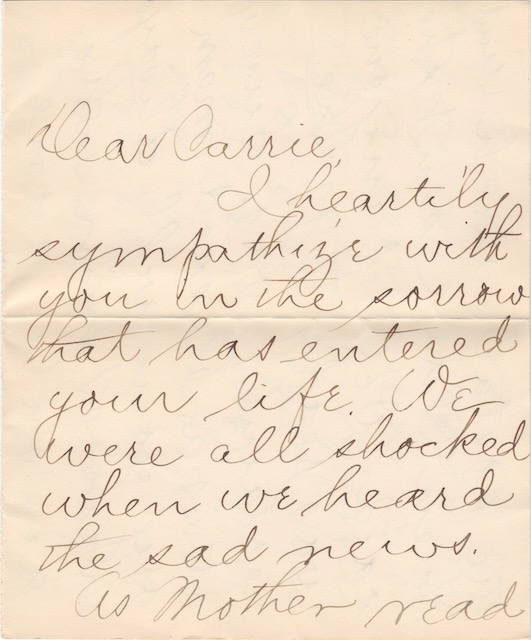 Dear Carrie,
I heartily
sympathize with
you in the sorrow
that has entered
your life. We
were all shocked
when we heard
the sad news.
As Mother read